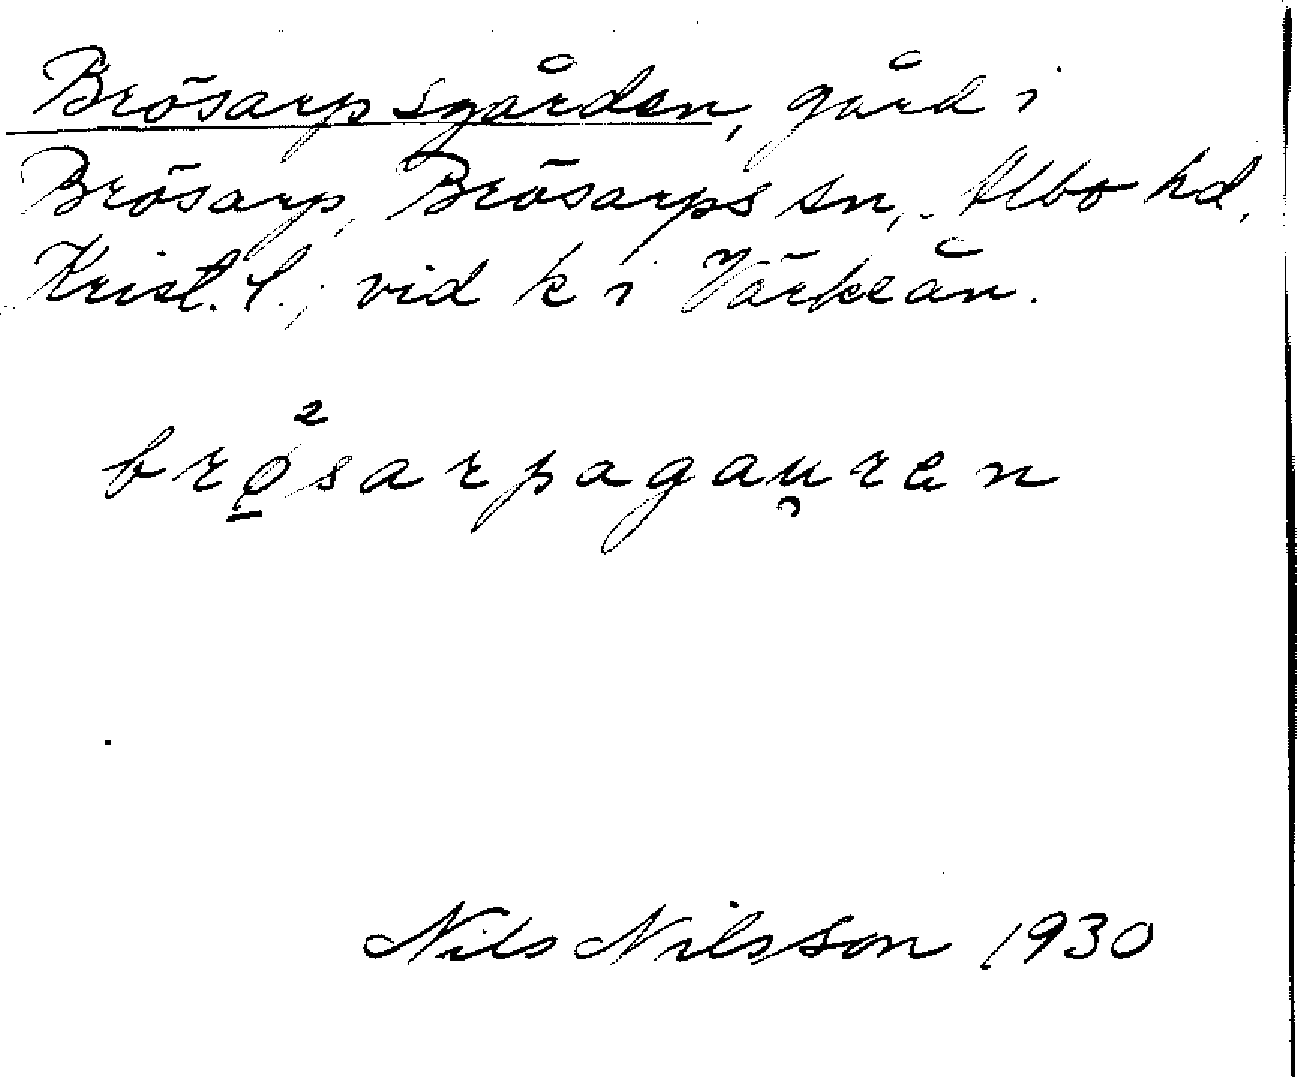 Brösarpsgården, gård i
Brösarp, Brösarps sn, Albo hd,
Krist. l., vid k i Värkeån.
brø̱²sarpagau̯ren
Nils Nilsson 1930